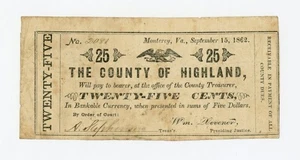 TWENTY-FIVE
No.
Monterey, Va., September 15, 1862.
25 25
THE COUNTY OF HIGHLAND,
Will pay to bearer, at the office of the County Treasurer,
TWENTY-FIVE CENTS,
In Bankable Currency, when presented in sums of Five Dollars.
By Order of Court:
Treas'r
Presiding Justice.
RECEIVABLE IN PAYMENT OF ALL
COUNTY DUES.